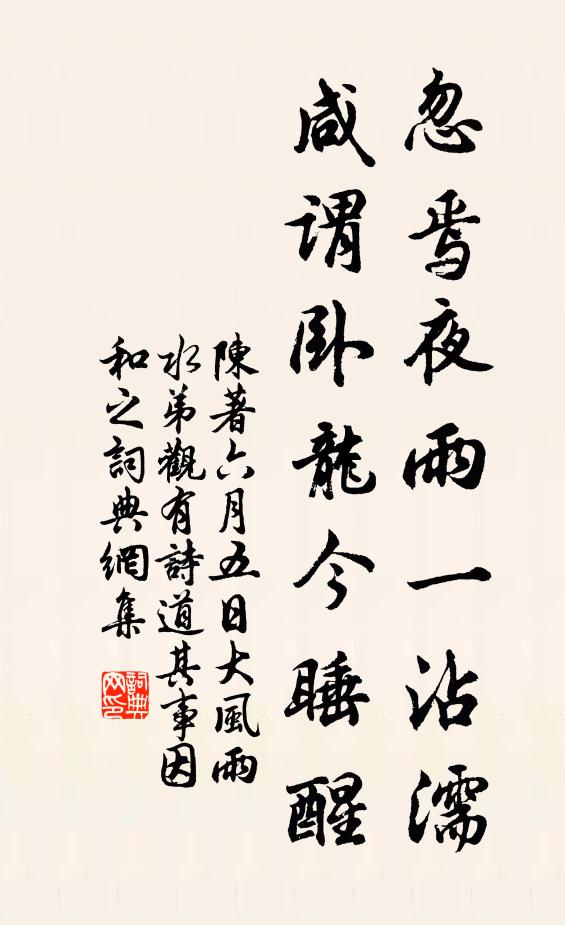 忽焉夜雨一沾濡
咸谓卧龍今睡醒
陳著六月五日大風雨
水弟觀有詩道其事因
和之詞典網集
詞典网印